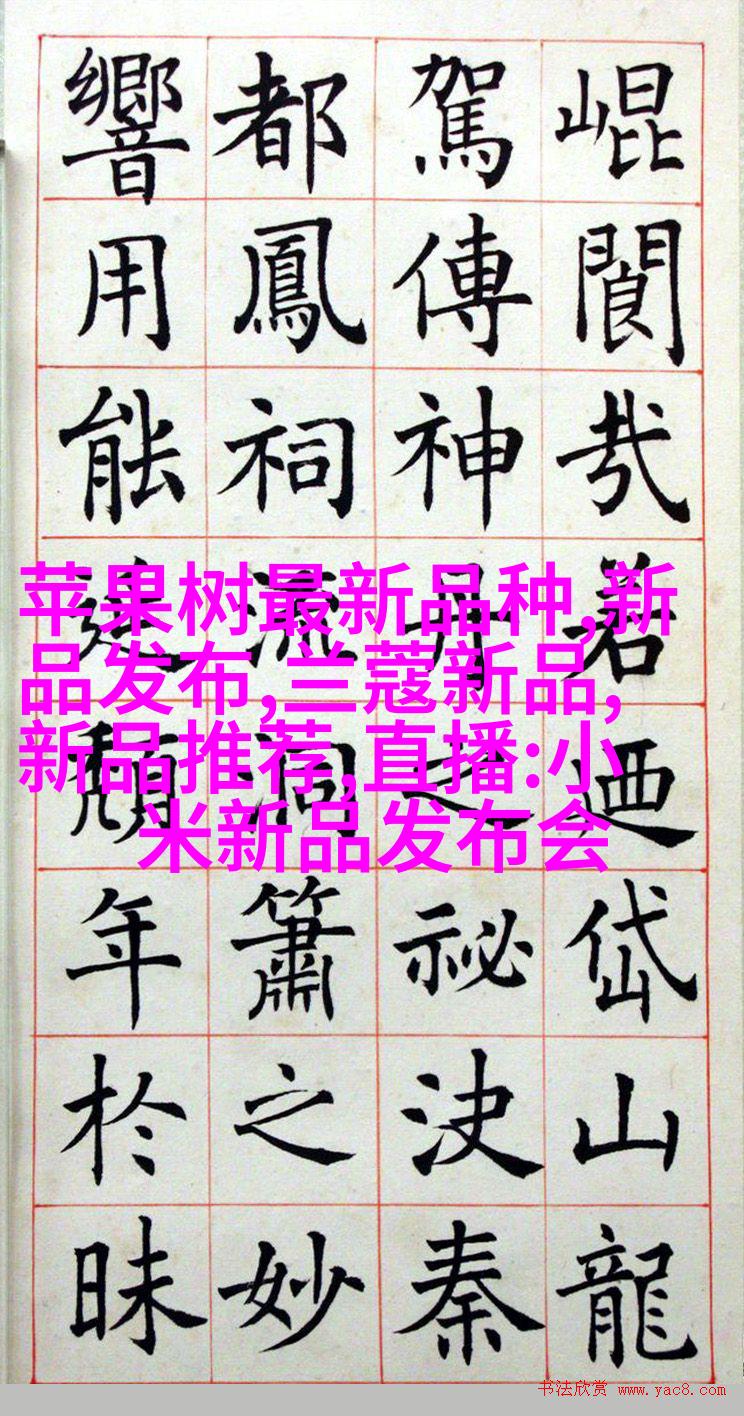 崐閬哉若迺岱山龍
駕傳神丹之祕決秦
都鳳祠流洞簫之妙
響用能頹年於昧
苹果树最新品种,新
品发布,兰蔻新品,
新品推荐,直播:小
米新品发布会
书法欣赏 www.yac8.com